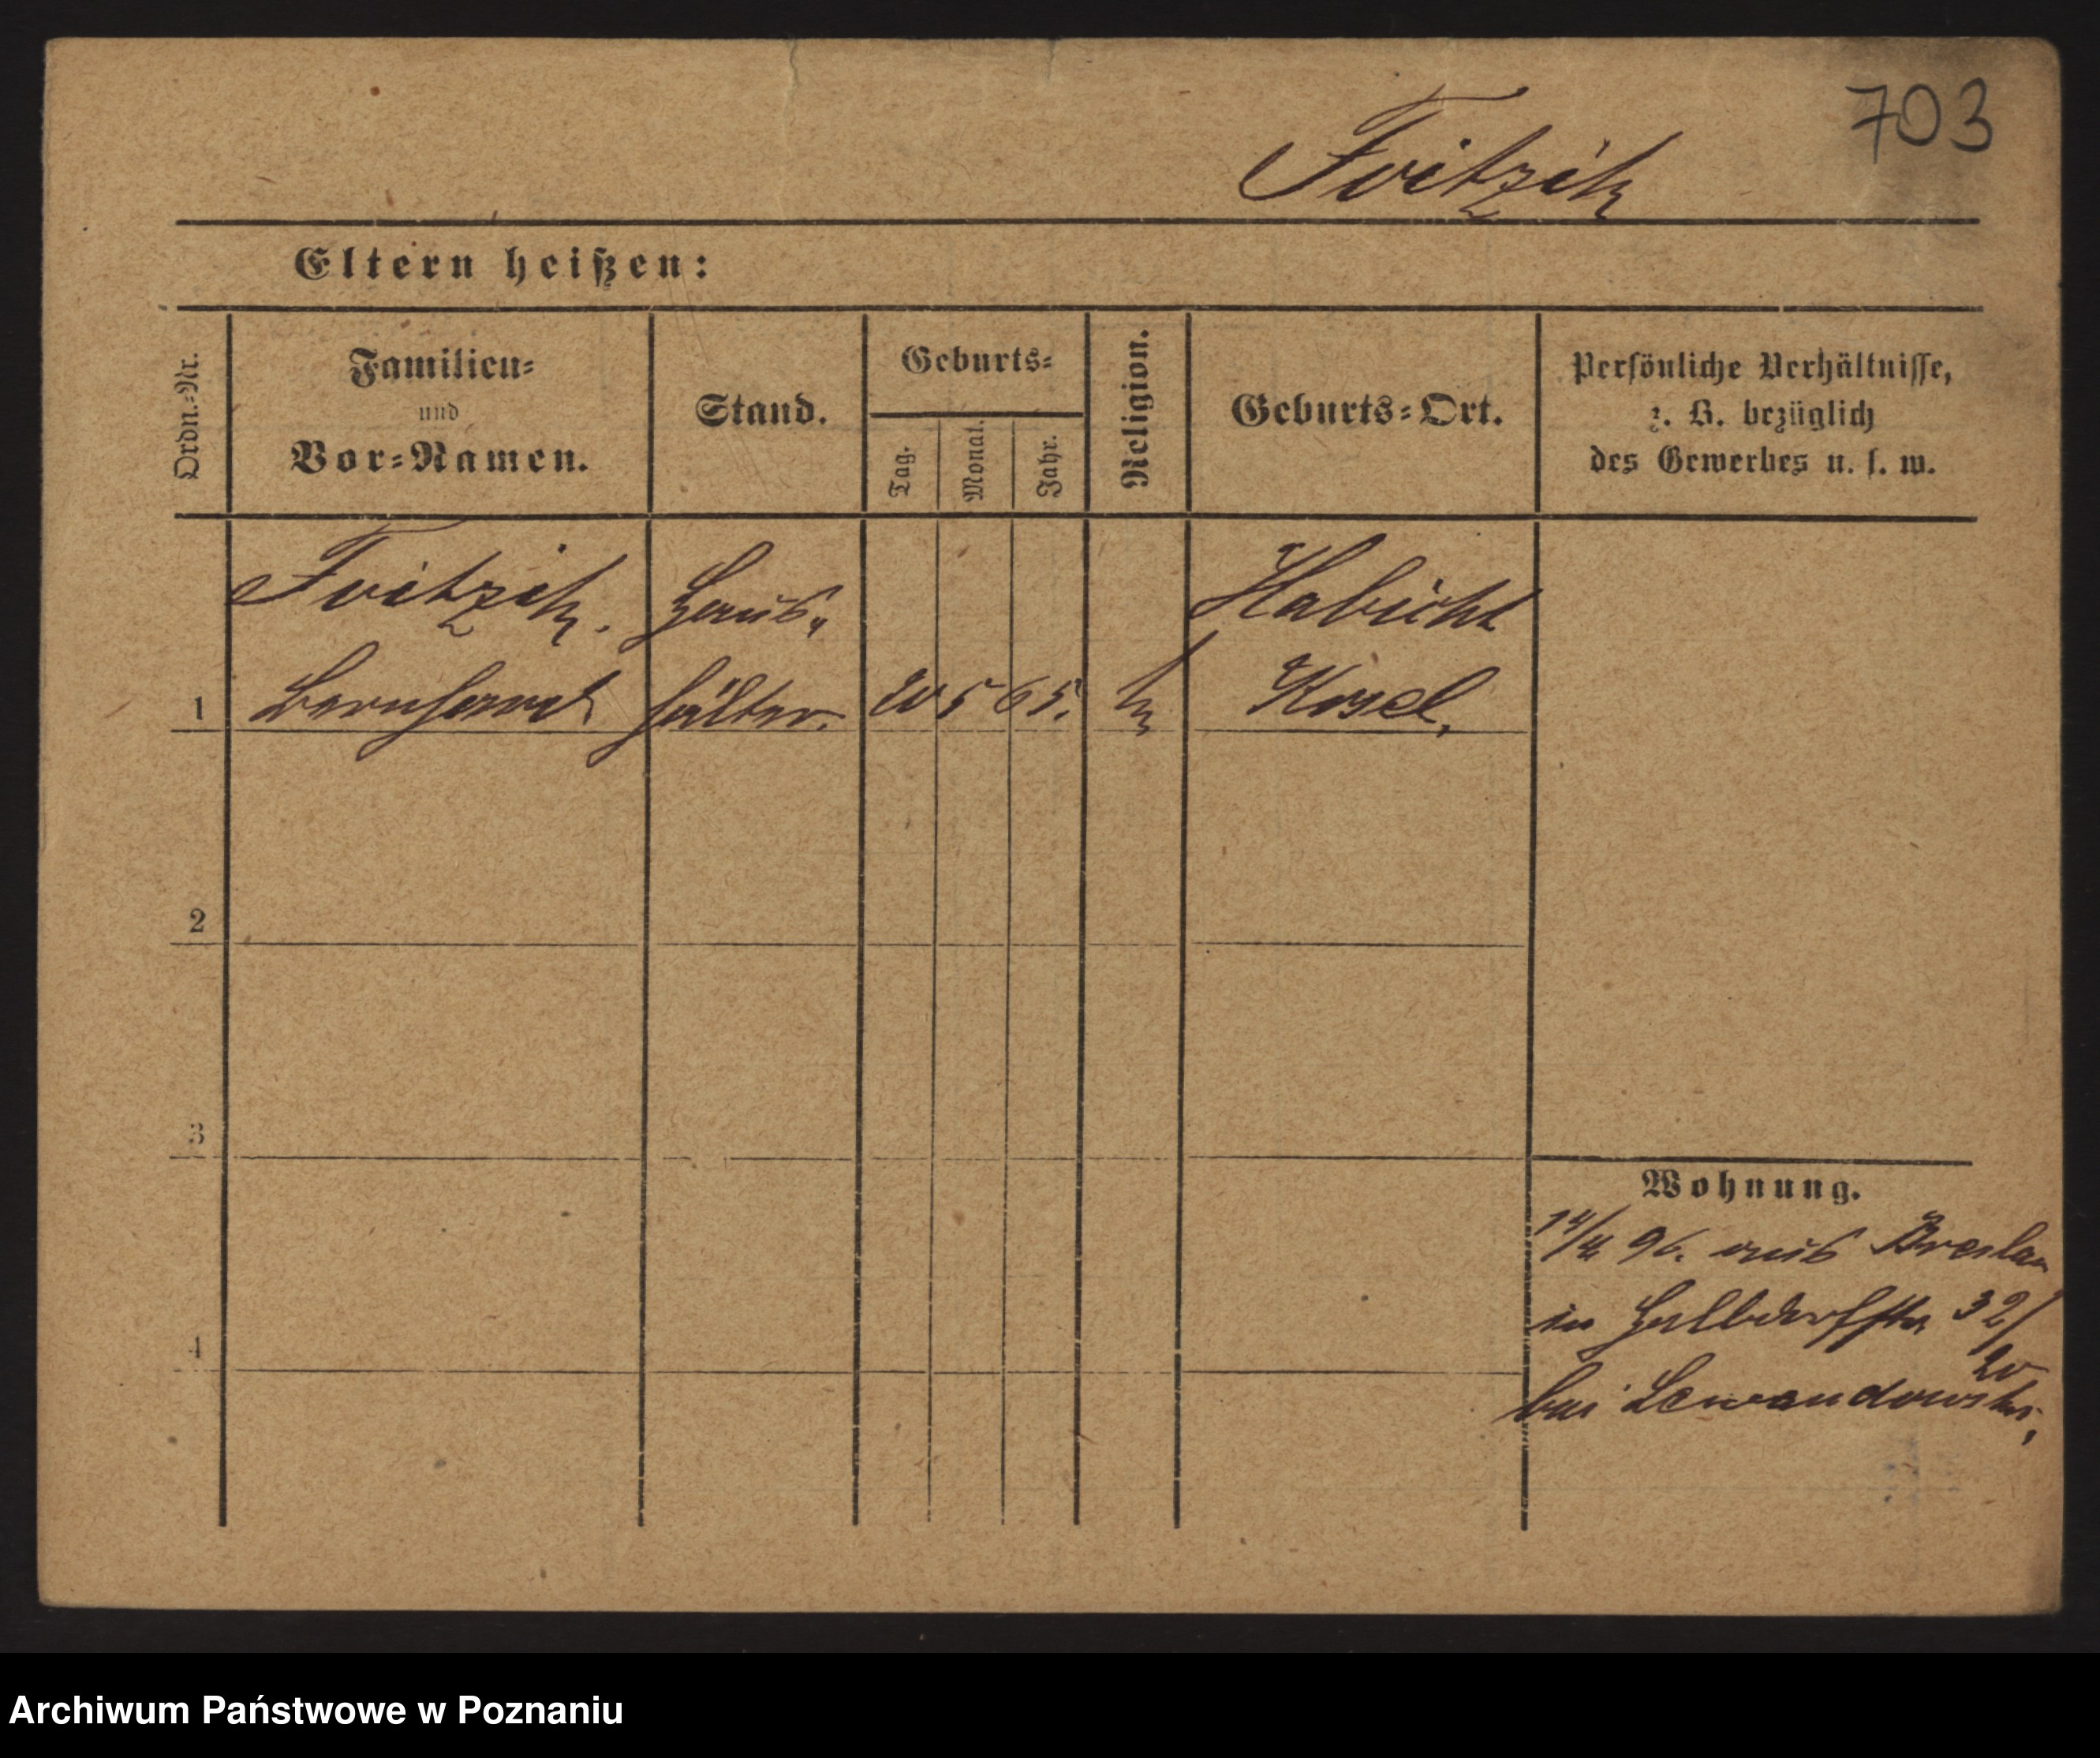 703
Fritzik
Eltern heißen:
Ordn.-Nr.
Familien-
und
Vor-Namen.
Stand.
Geburts-
Tag.
Monat.
Jahr.
Religion.
Geburts-Ort.
Persönliche Verhältnisse,
z. B. bezüglich
des Gewerbes u. s. w.
Fritzik. Haus- Habicht
1 Bernhard hälter. 20 5 65. k Kosel.
2
3
4
Wohnung.
14/4 96. aus Breslau
in Halbdorfstr 32/
20
bei Lewandowski,
Archiwum Państwowe w Poznaniu